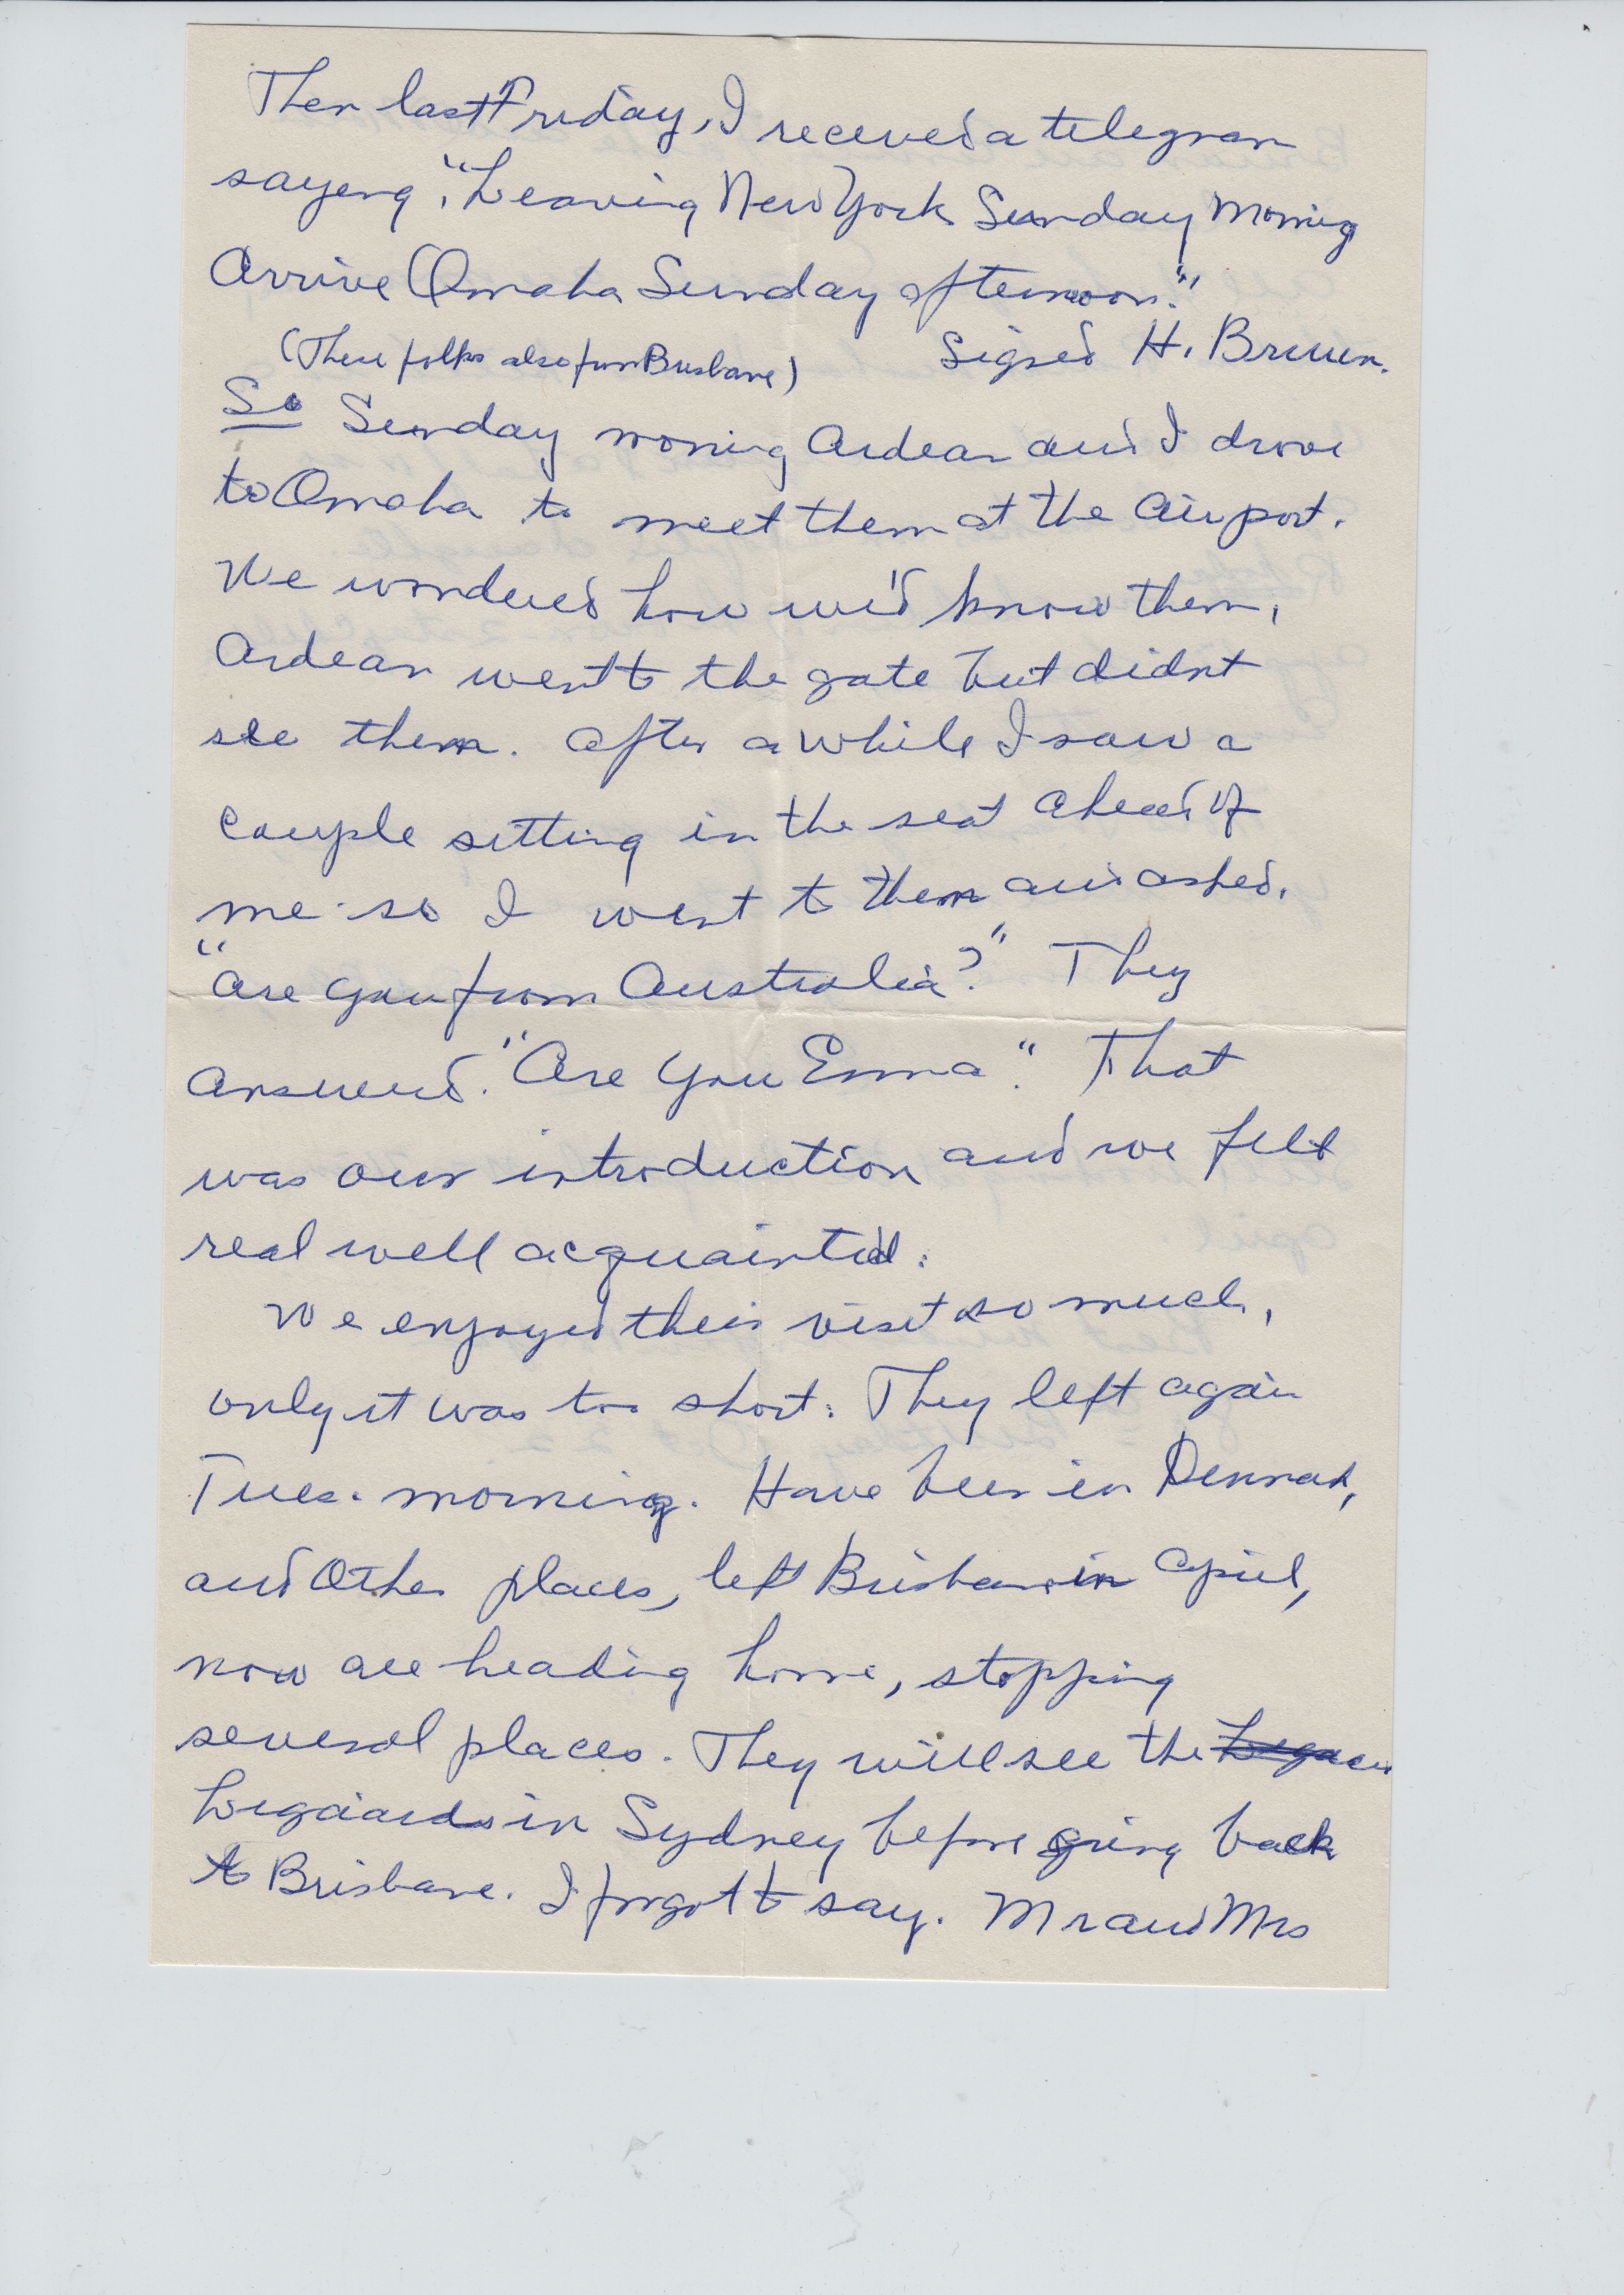 Then last Friday, I received a telegram
saying, "Leaving New York Sunday Morning
Arrive Omaha Sunday afternoon."
(These folks also from Brisbane) Signed H. Bruun.
So Sunday morning Ardean and I drove
to Omaha to meet them at the Airport.
We wondered how we'd know them,
Ardean went to the gate but didnt
see them. After a while I saw a
couple sitting in the seat ahead of
me so I went to them and asked.
"Are you from Australia?" They
answered. "Are you Emma". That
was our introduction and we felt
real well acquainted.
We enjoyed their visit so much,
only it was too short. They left again
Tues. morning. Have been in Denmark,
and Other places, left Brisbane in April,
now are heading home, stopping
several places. They will see the
Legaards in Sydney before going back
to Brisbane. I forgot to say. Mr and Mrs